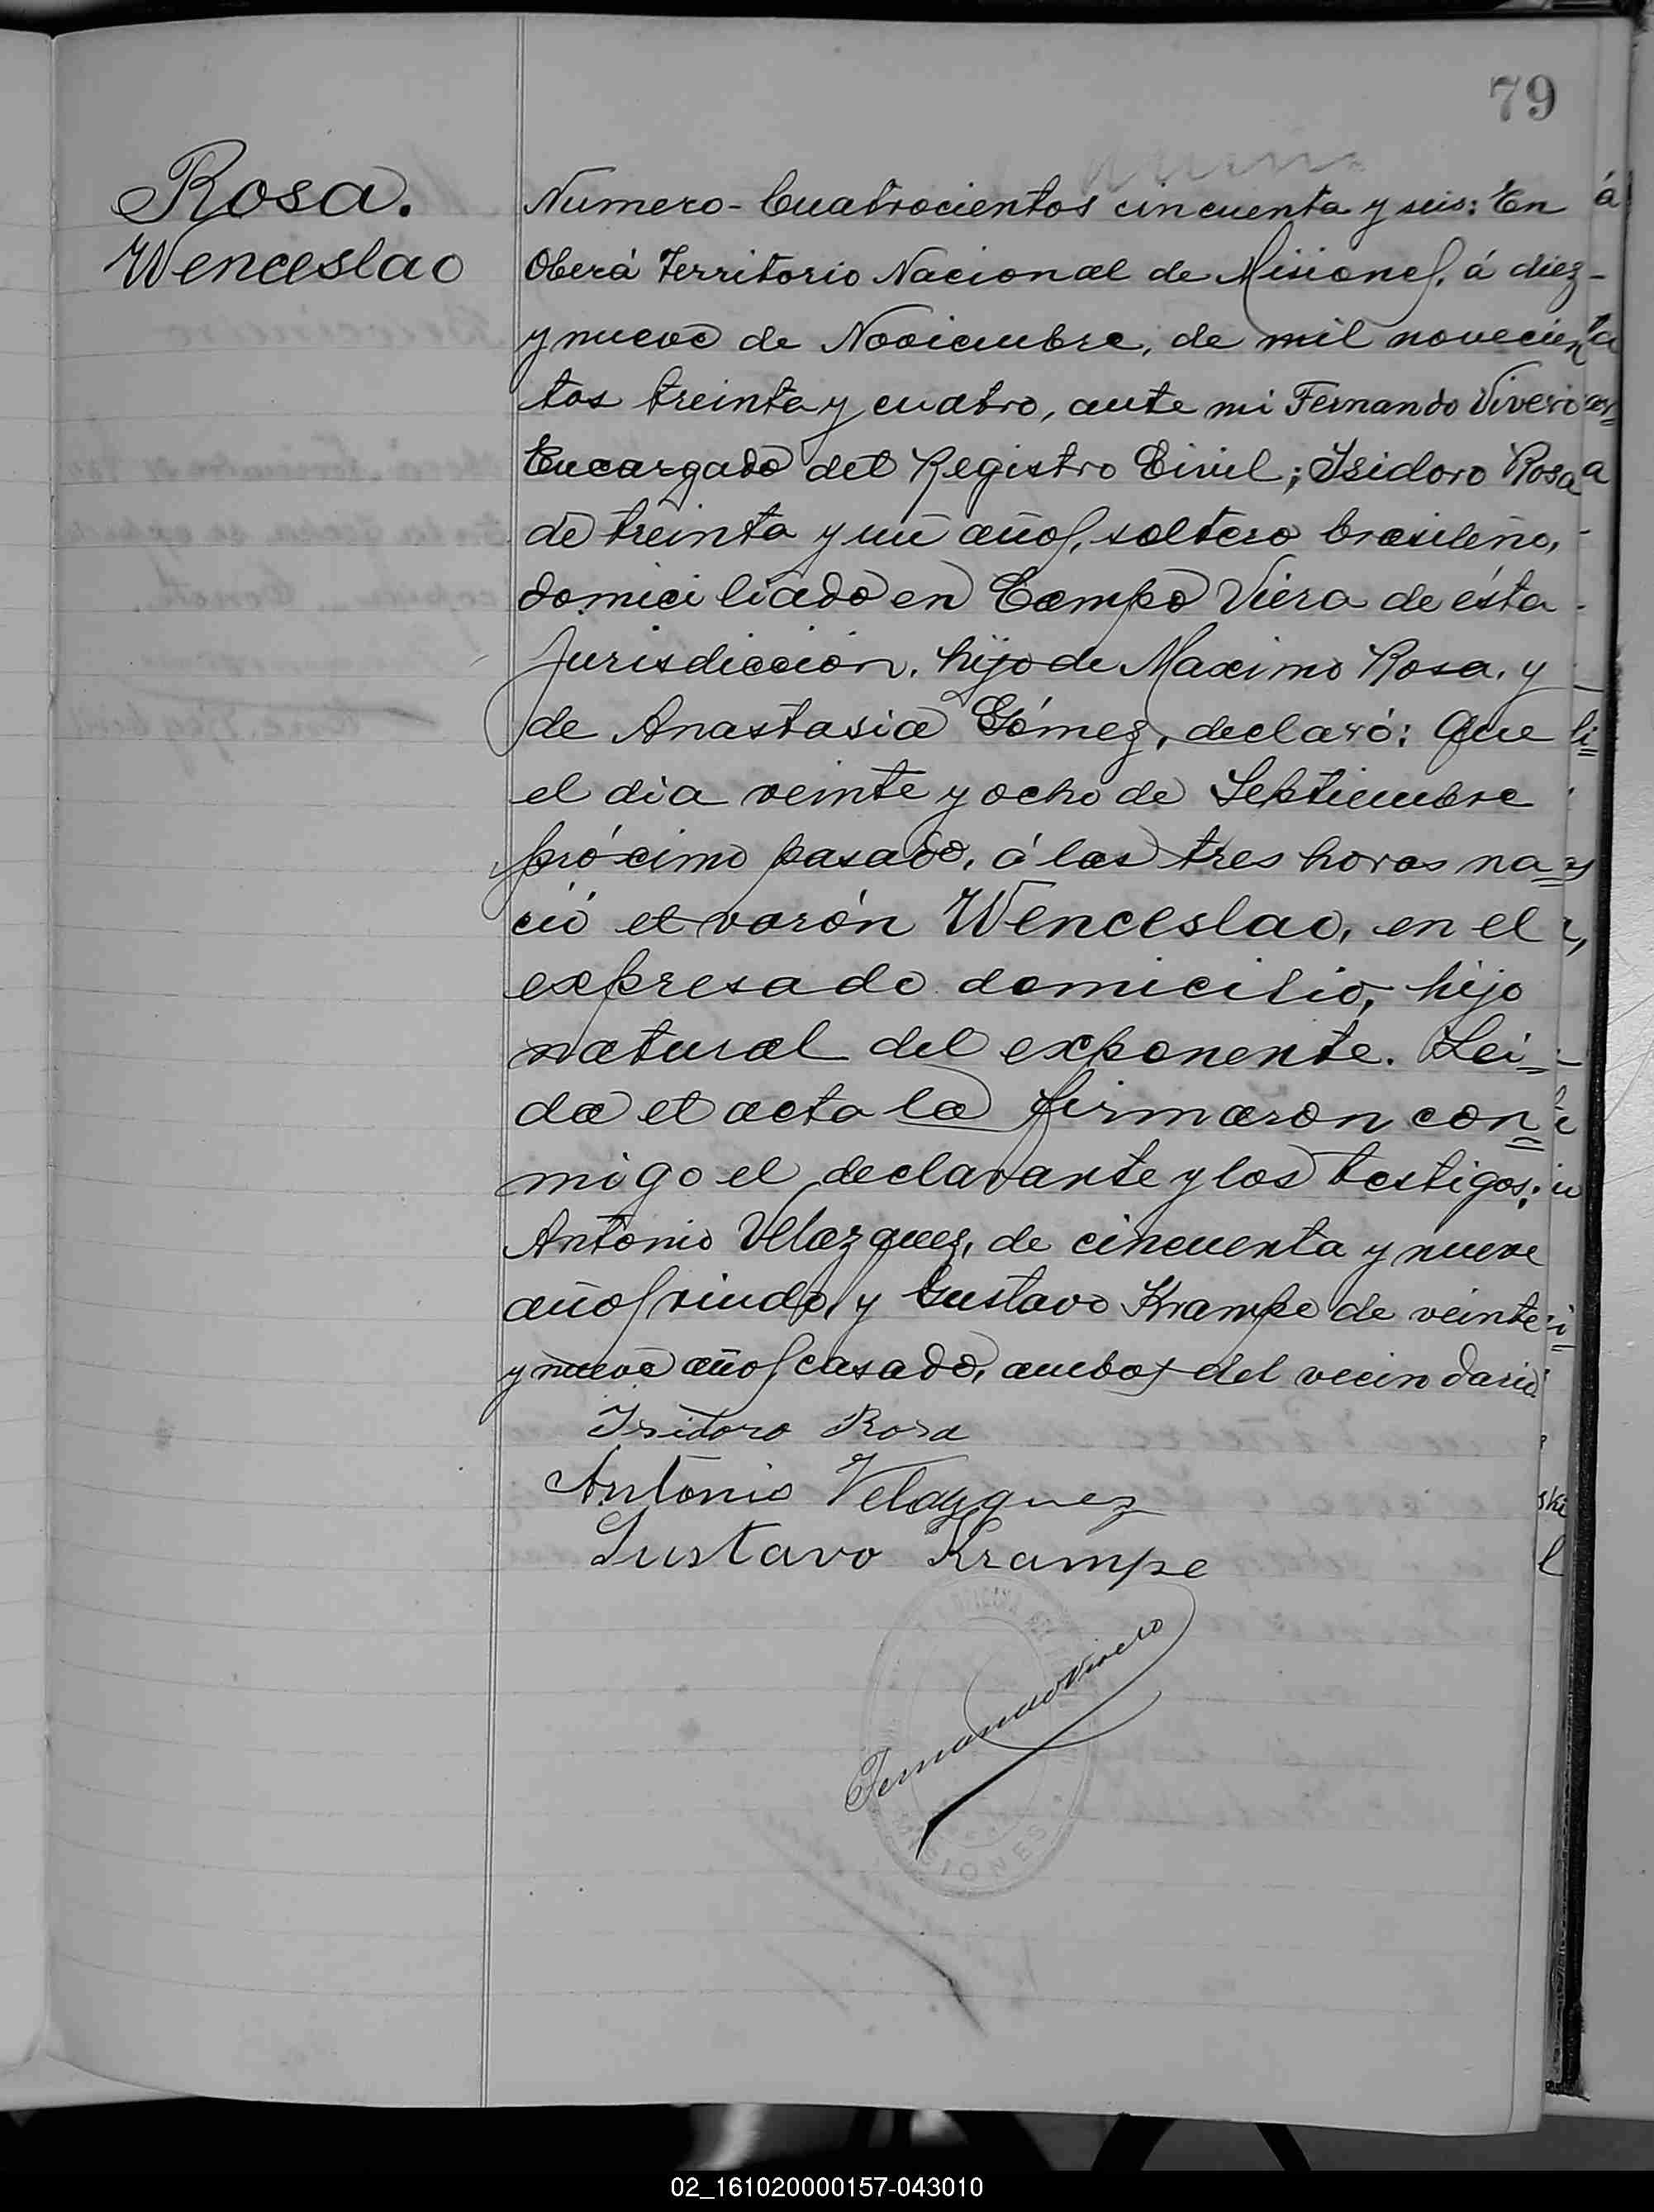 79
Rosa.
Wenceslao
Numero - Cuatrocientos cincuenta y seis: En
Oberá Territorio Nacional de Misiones, á diez-
y nueve de Noviembre, de mil novecien
tos treinta y cuatro, ante mi Fernando Vivero
Encargado del Registro Civil; Isidoro Rosa
de treinta y un años, soltero brasileño,
domiciliado en Campo Viera de ésta
Jurisdicción, hijo de Maximo Rosa, y
de Anastasia Gómez, declaró: Que
el dia veinte y ocho de Septiembre
próximo pasado, á las tres horas na=
ció el varón Wenceslao, en el
expresado domicilio, hijo
natural del exponente. Lei=
da el acta la firmaron con=
migo el declarante y los testigos;
Antonio Velazquez, de cincuenta y nueve
años viudo, y Gustavo Krampe de veinte
y nueve años casado, ambos del vecindario
Isidoro Rosa
Antonio Velazquez
Gustavo Krampe
Fernando Vivero
MISIONES
02_161020000157-043010